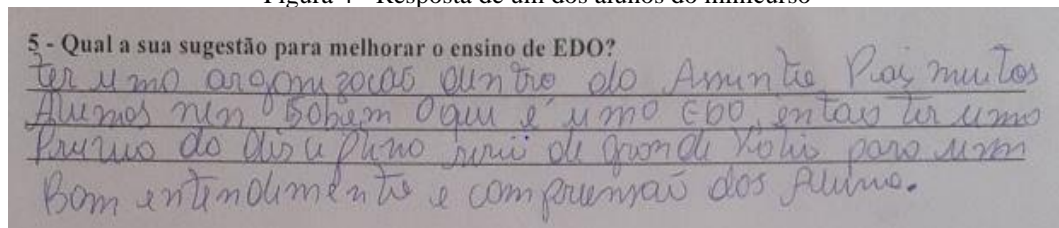 Figura 4 - Resposta de um dos alunos do minicurso
5 - Qual a sua sugestão para melhorar o ensino de EDO?
ter uma organização dentro do Assunto Pois muitos
Alunos nem Sabem Oque é uma EDO, entao ter uma
do disciplina seria de grande para um
Bom entendimento e compreensão dos Aluno.